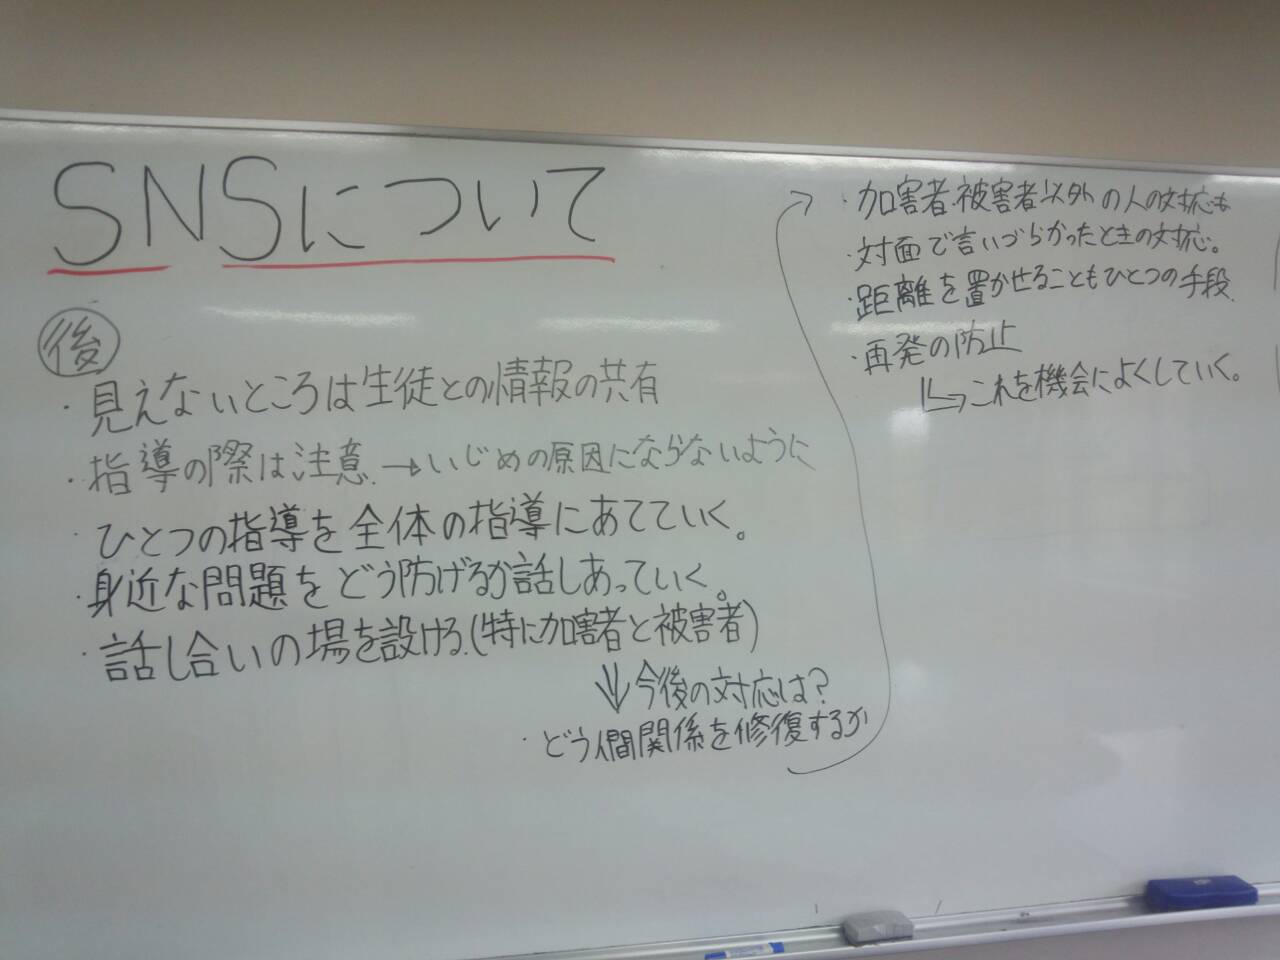 SNSについて
後
・見えないところは生徒との情報の共有
・指導の際は注意→いじめの原因にならないように
・ひとつの指導を全体の指導にあてていく。
・身近な問題をどう防げるか話しあっていく。
・話し合いの場を設ける.(特に加害者と被害者)
⇓今後の対応は?
・どう人間関係を修復するか
・加害者.被害者以外の人の対応も
・対面で言いづらかったときの対応。
・距離を置かせることもひとつの手段.
・再発の防止
↳これを機会によくしていく。